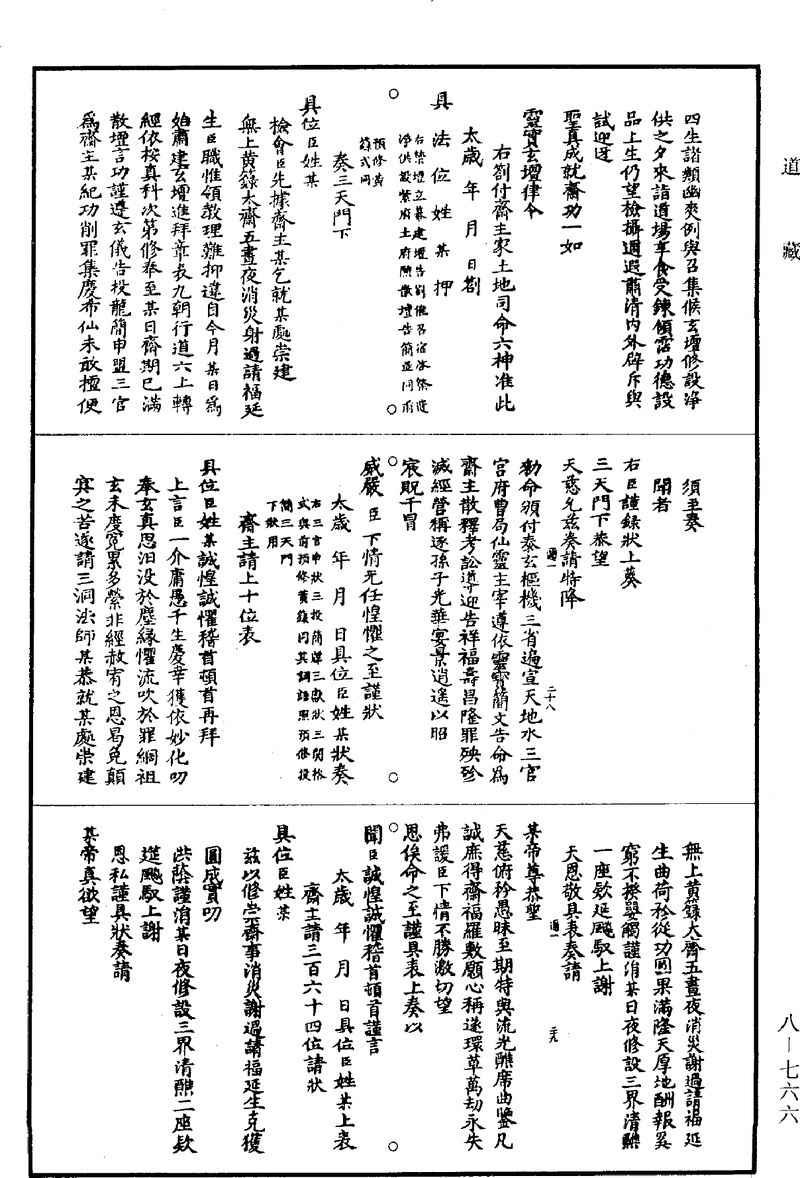 道藏
四生諸類幽爽例與召集候玄壇修設淨
供之夕來詣道場享食受鍊傾霑功德設
品上生仍望檢攝遐邇肅清內外辟斥與
試迎迓
聖真成就齋功一如
靈寶玄壇律令
右劄付齋主家土地司命六神准此
太歲 年 月 日劄
具 法 位 姓 某 押
預修黃
籙式同
奏三天門下
具位臣姓某
檢會臣先據齋主某乞就某處崇建
無上黃籙大齋五晝夜消災謝過請福延
生臣職惟領教理難抑違自今月某日爲
始肅建玄壇進拜章表九朝行道六上轉
經依按真科次第修奉至某日齋期已滿
散壇言功謹遵玄儀告投龍簡申盟三官
爲齋主某紀功削罪集慶布仙未敢擅便
須至奏
聞者
右臣謹錄狀上奏
三天門下恭望
天慈允兹奏請特降
勑命頒付泰玄樞機三省遍宣天地水三官
宮府曹局仙靈主宰遵依靈寶簡文告命爲
齋主散釋考訟導迎吉祥福壽昌隆罪殃殄
滅經營稱遂孫子光華宴景逍遙以昭
宸貺干冒
威嚴臣下情无任惶懼之至謹狀
太歲 年 月 日具位臣姓某狀奏
右三官申狀三投簡牒三獻狀三關格
式與前預修黃籙同其詞語照預修投
簡三天門
下狀用
齋主請上十位表
具位臣姓某誠惶誠懼稽首頓首再拜
上言臣一介庸愚千生慶幸獲依妙化叨
奉玄真思汨没於塵緣懼流吹於罪網祖
玄未度冤累多縈非經赦宥之恩曷免顛
冥之苦遂請三洞法師某恭就某處崇建
無上黃籙大齋五晝夜消災謝過請福延
生曲荷矜從功圓果滿隆天厚地酬報奚
窮不揆嬰觸謹涓某日夜修設三界清醮
一座欵延飈馭上謝
天恩敬具表奏請
某帝尊恭望
天慈俯矜愚昧至期特與流光醮席曲鑒凡
誠庶得齋福羅敷願心稱遂環草萬劫永失
弗諼臣下情不勝激切望
恩俟命之至謹具表上奏以
聞臣誠惶誠懼稽首頓首謹言
太歲 年 月 日具位臣姓某上表
齋主請三百六十四位請狀
具位臣姓某
兹以修崇齋事消災謝過請福延生克獲
圓成實叨
洪蔭謹涓某日夜修設三界清醮二座欵
筵飈馭上謝
恩私謹具狀奏請
某帝真欲望
二十八
二十九
八－七六六